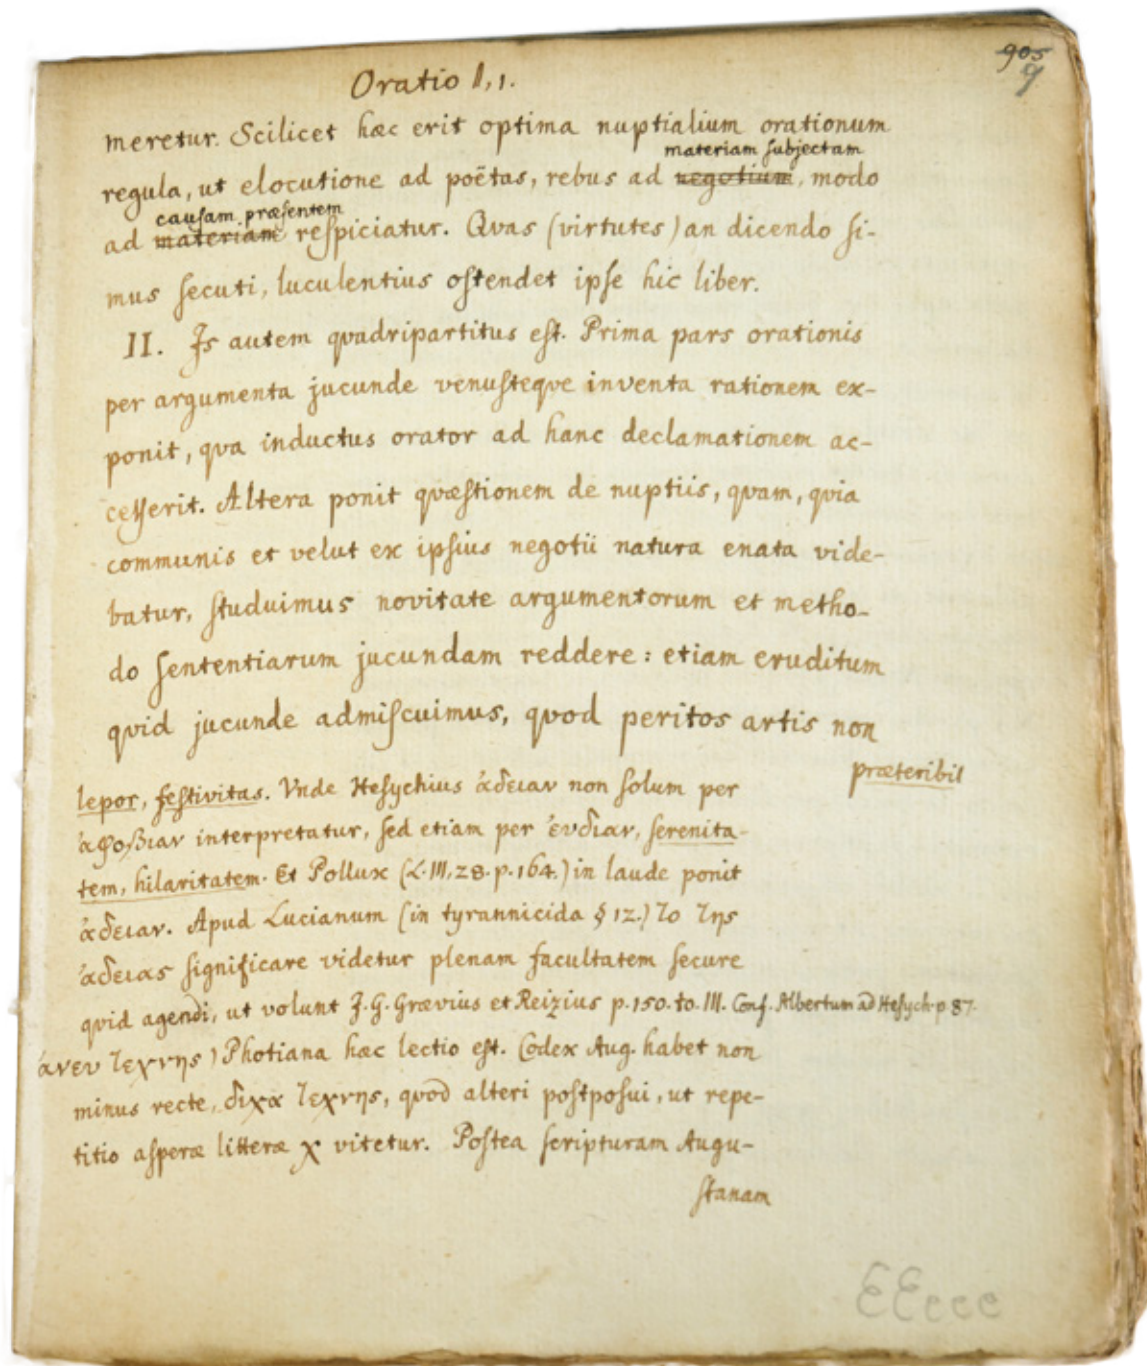 905
9
Oratio I, 1.
meretur. Scilicet hæc erit optima nuptialium orationum
materiam subjectam
regula, ut elocutione ad poëtas, rebus ad negotium, modo
causam præsentem
ad materiam respiciatur. Qvas (virtutes) an dicendo si-
mus secuti, luculentius ostendet ipse hic liber.
II. Is autem qvadripartitus est. Prima pars orationis
per argumenta jucunde venusteqve inventa rationem ex-
ponit, qva inductus orator ad hanc declamationem ac-
cesserit. Altera ponit qvæstionem de nuptiis, qvam, qvia
communis et velut ex ipsius negotii natura enata vide-
batur, studuimus novitate argumentorum et metho-
do sententiarum jucundam reddere: etiam eruditum
qvid jucunde admiscuimus, qvod peritos artis non
præteribit
lepor, festivitas. Vnde Hesychius ἀδειαν non solum per
ἀφοβιαν interpretatur, sed etiam per ἐυδιαν, serenita-
tem, hilaritatem. Et Pollux (L. III, 28. p. 164.) in laude ponit
ἀδειαν. Apud Lucianum (in tyrannicida § 12.) το της
ἀδειας significare videtur plenam facultatem secure
qvid agendi, ut volunt J. G. Grævius et Reizius p. 150. to. III. Conf. Albertum ad Hesych. p. 87.
ἀνευ τεχνης) Photiana hæc lectio est. Codex Aug. habet non
minus recte, διχα τεχνης, qvod alteri postposui, ut repe-
titio asperæ litteræ χ vitetur. Postea scripturam Augu-
stanam
EEeee